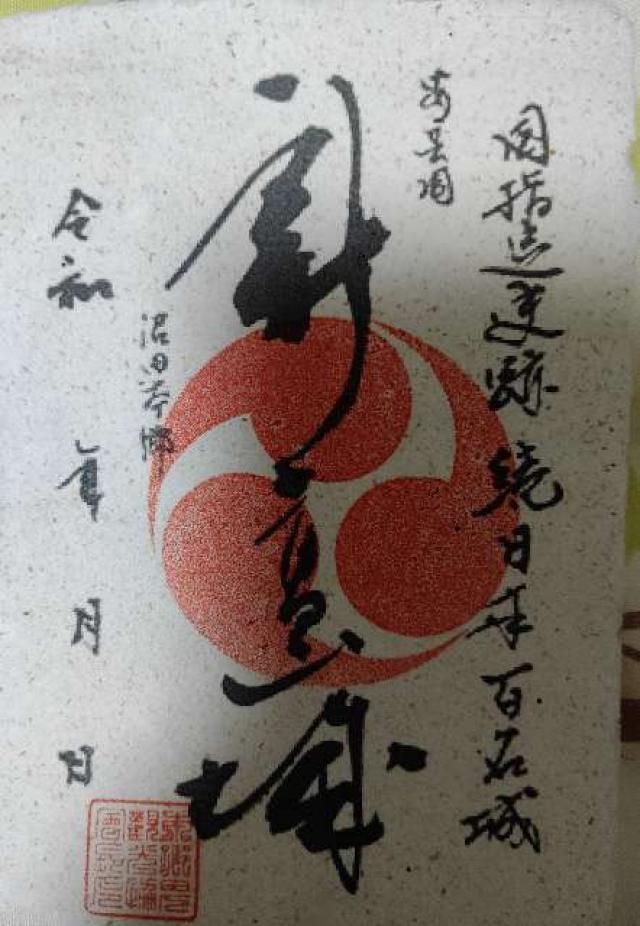 国指定史跡 続日本百名城
安芸国
新高山城
沼田本郷
令和 年 月 日